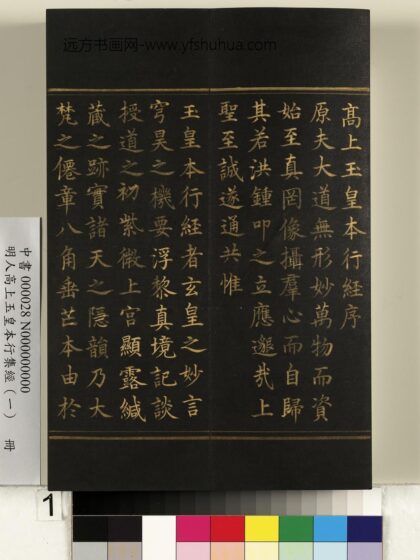 远方书画网-www.yfshuhua.com
高上玉皇本行經序
原夫大道無形妙萬物而資
始至真罔像攝羣心而自歸
其若洪鍾叩之立應邈哉上
聖至誠遂通共惟
玉皇本行經者玄皇之妙言
穹昊之機要浮黎真境記談
授道之初紫微上宮顯露緘
藏之跡實諸天之隱韻乃大
梵之僊章八角垂芒本由於
中書 000028 N000000000
明人高上玉皇本行集經（一） 冊
1